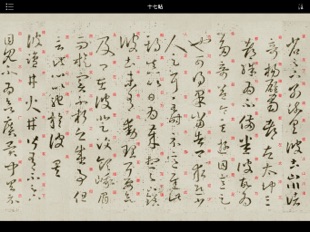 十七帖
省足下別疏具彼土山川諸
奇揚雄蜀都左太沖三
都殊為不備悉彼故為
多奇益令其遊目意足
也可得果當告卿求迎少
人足耳至時示意遲此期
真以日為歲想足下鎮
彼土未有動理耳要欲
及卿在彼登汶領峨眉
而旋實不朽之盛事但
言此心以馳於彼矣
彼鹽井火井皆有不足下
目見不為欲廣異聞具示